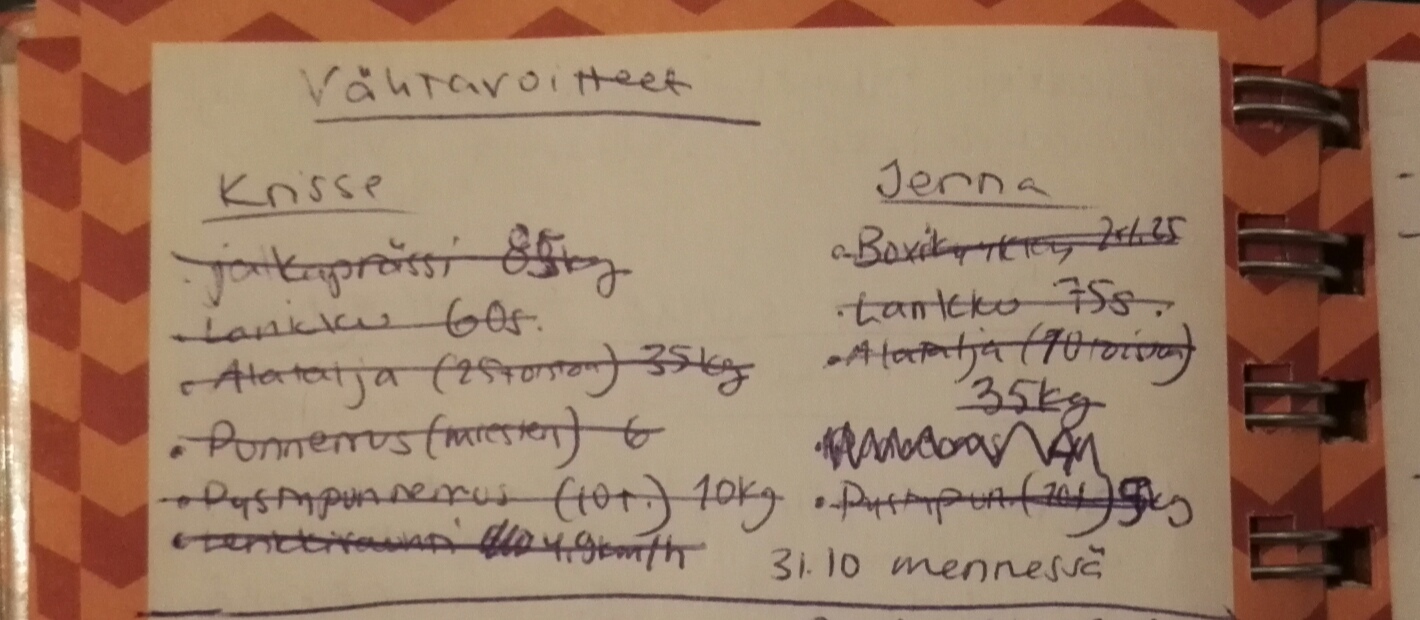 Vähtavoitteet
Krisse
jalkaprässi 85kg
Lankku 60s.
Alatalja (25toiston) 35kg
Punnerrus (miesten) 6
Pystypunnerrus (10t.) 10kg
4.9km/h
Jenna
75s.
Lankku 75s.
Alatalja (10toiston)
35kg
Pystypun (10t.) 5kg
31.10 mennessä